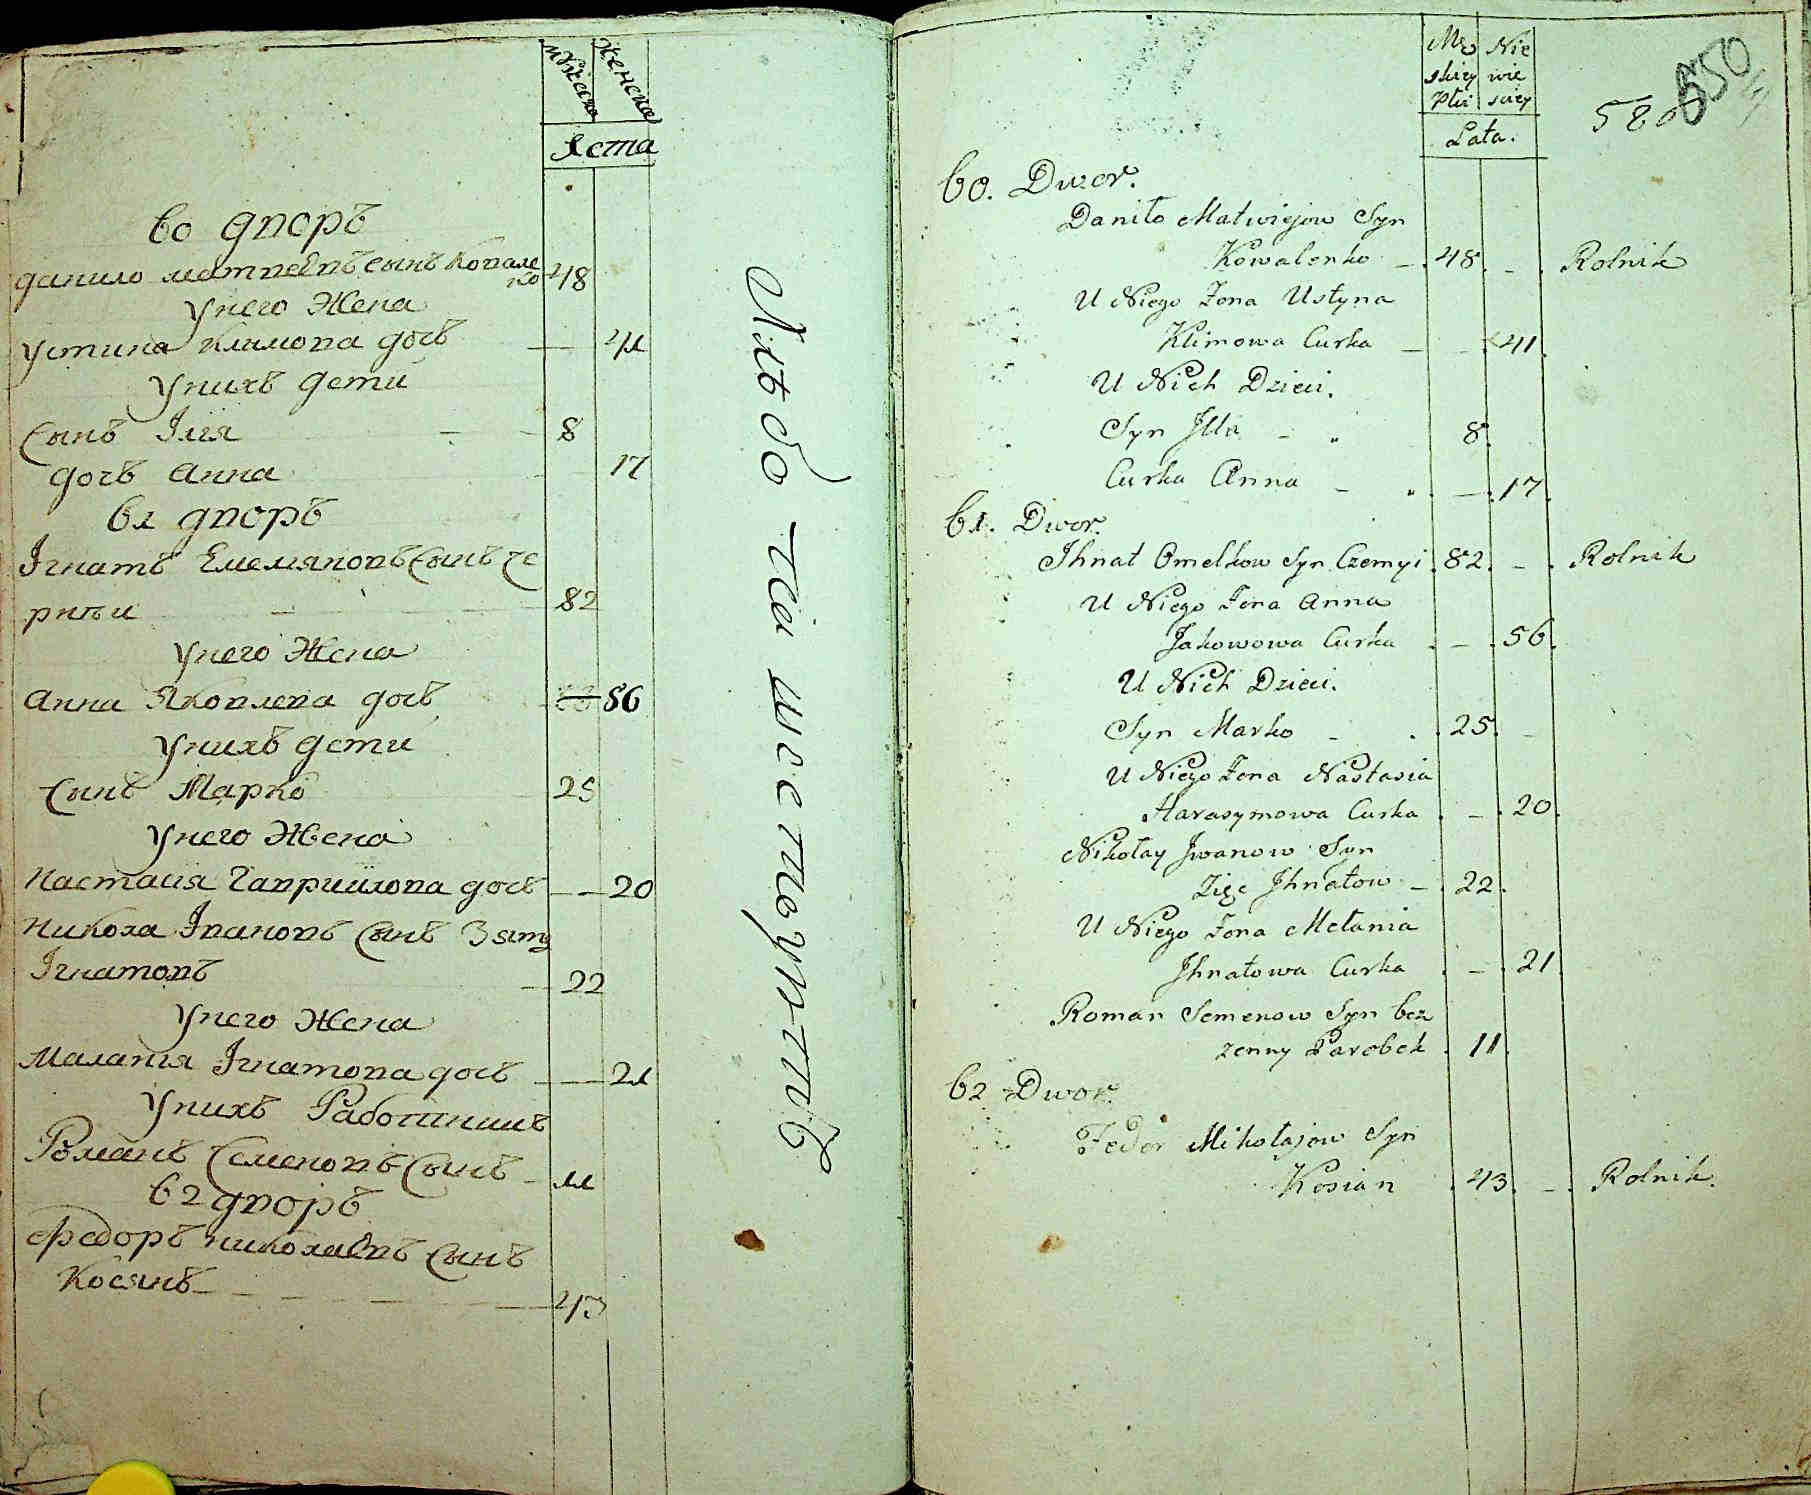 мужеска женска
лета
60 дворъ
данило матвеевъ сынъ Ковале
нко 48
унего Жена
устина климова дочь 41
унихъ дети
Сынъ Iлiя 8
дочь анна 17
61 дворъ
Iгнатъ Емемяновъ Сынъ че
рныи 82
унего Жена
анна Яковлева дочь 56
унихъ дети
Сынъ Марко 25
унего Жена
настасiя Гавриилова дочь 20
никола Iвановъ Сынъ Зять
Iгнатовъ 22
унего Жена
маланiя Iгнатова дочь 21
унихъ Работникъ
Романъ Семеновъ Сынъ 11
62 дворъ
федоръ николаевъ Сынъ
Косянъ 43
хлебо
Mę Nie
skiey wie
Płci sciey
Lata.
580 550
60. Dwor.
Daniło Matwiejow Syn
Kowalenko 48. Rolnik
U Niego Zona Ustyna
Klimowa Curka 41.
U Nich Dzieci.
Syn Illa 8.
Curka Anna 17.
61. Dwor.
Jhnat Omelkow Syn Czernyi 82. Rolnik
U Niego Zona Anna
Jakowowa Curka 56.
U Nich Dzieci.
Syn Marko 25.
U Niego Zona Nastasia
Harasymowa Curka 20.
Nikołay Jwanow Syn
Zięc Jhnatow 22.
U Niego Zona Mełania
Jhnatowa Curka 21
Roman Semenow Syn bez
zenny Parobek 11
62 Dwor.
Fedor Mikołajow Syn
Kosian 43. Rolnik.